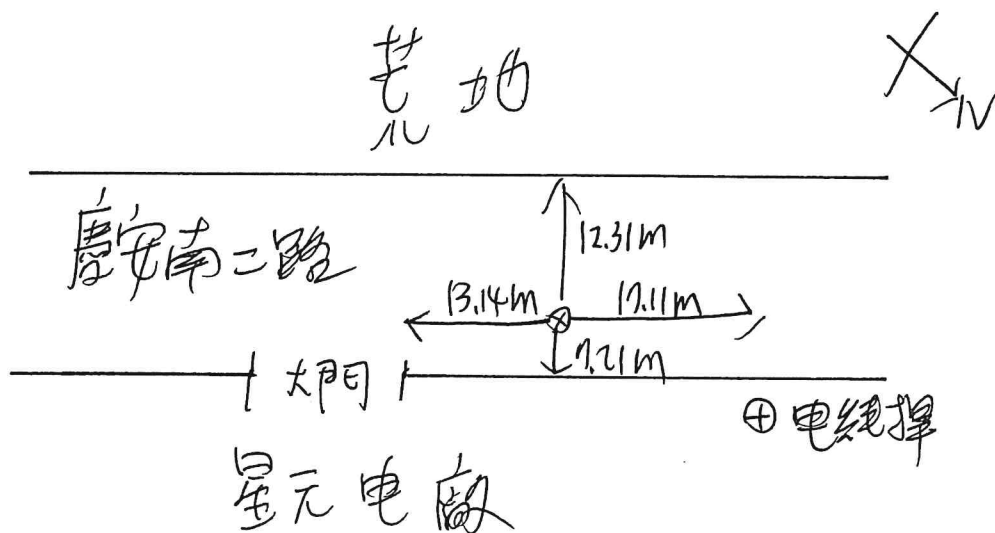 荒地
N
慶安南二路
12.31m
13.14m
17.11m
7.21m
大門
电線桿
星元电廠